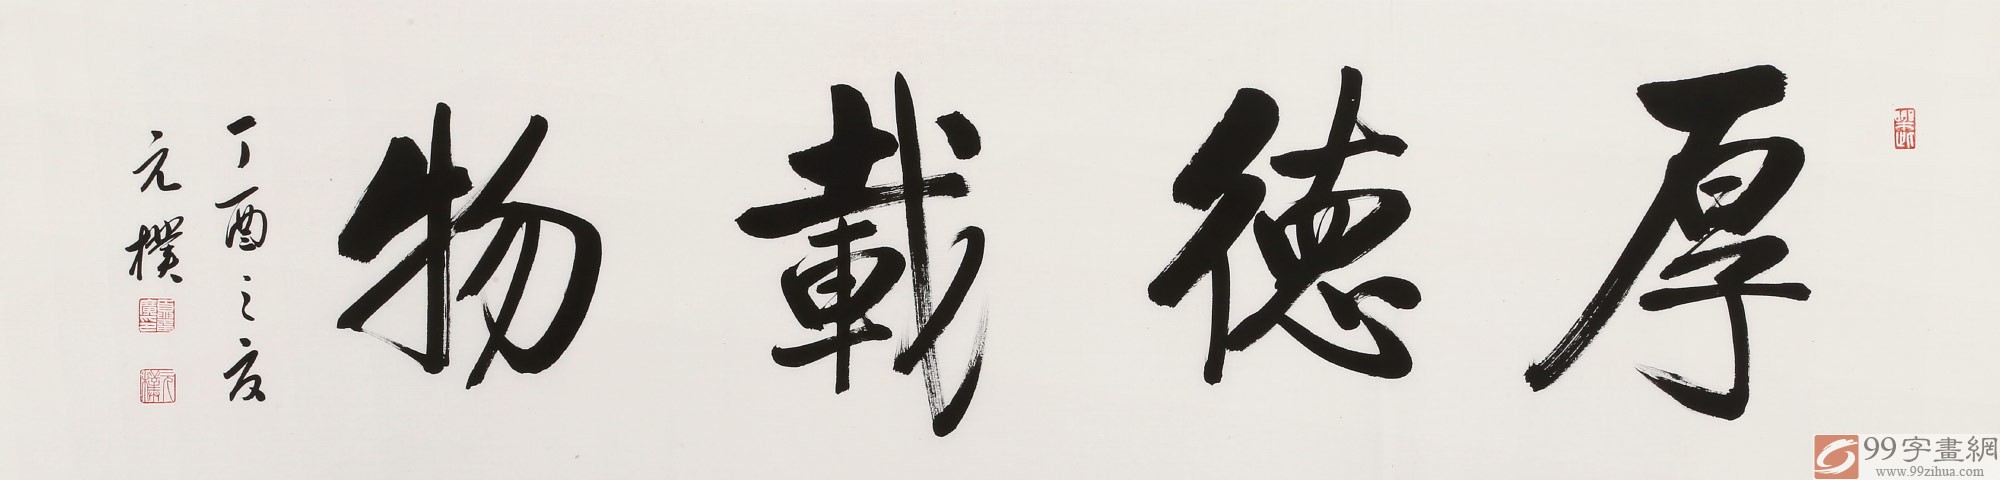 厚德載物
丁酉之夏
元樸
元樸
99字畫網
www.99zihua.com